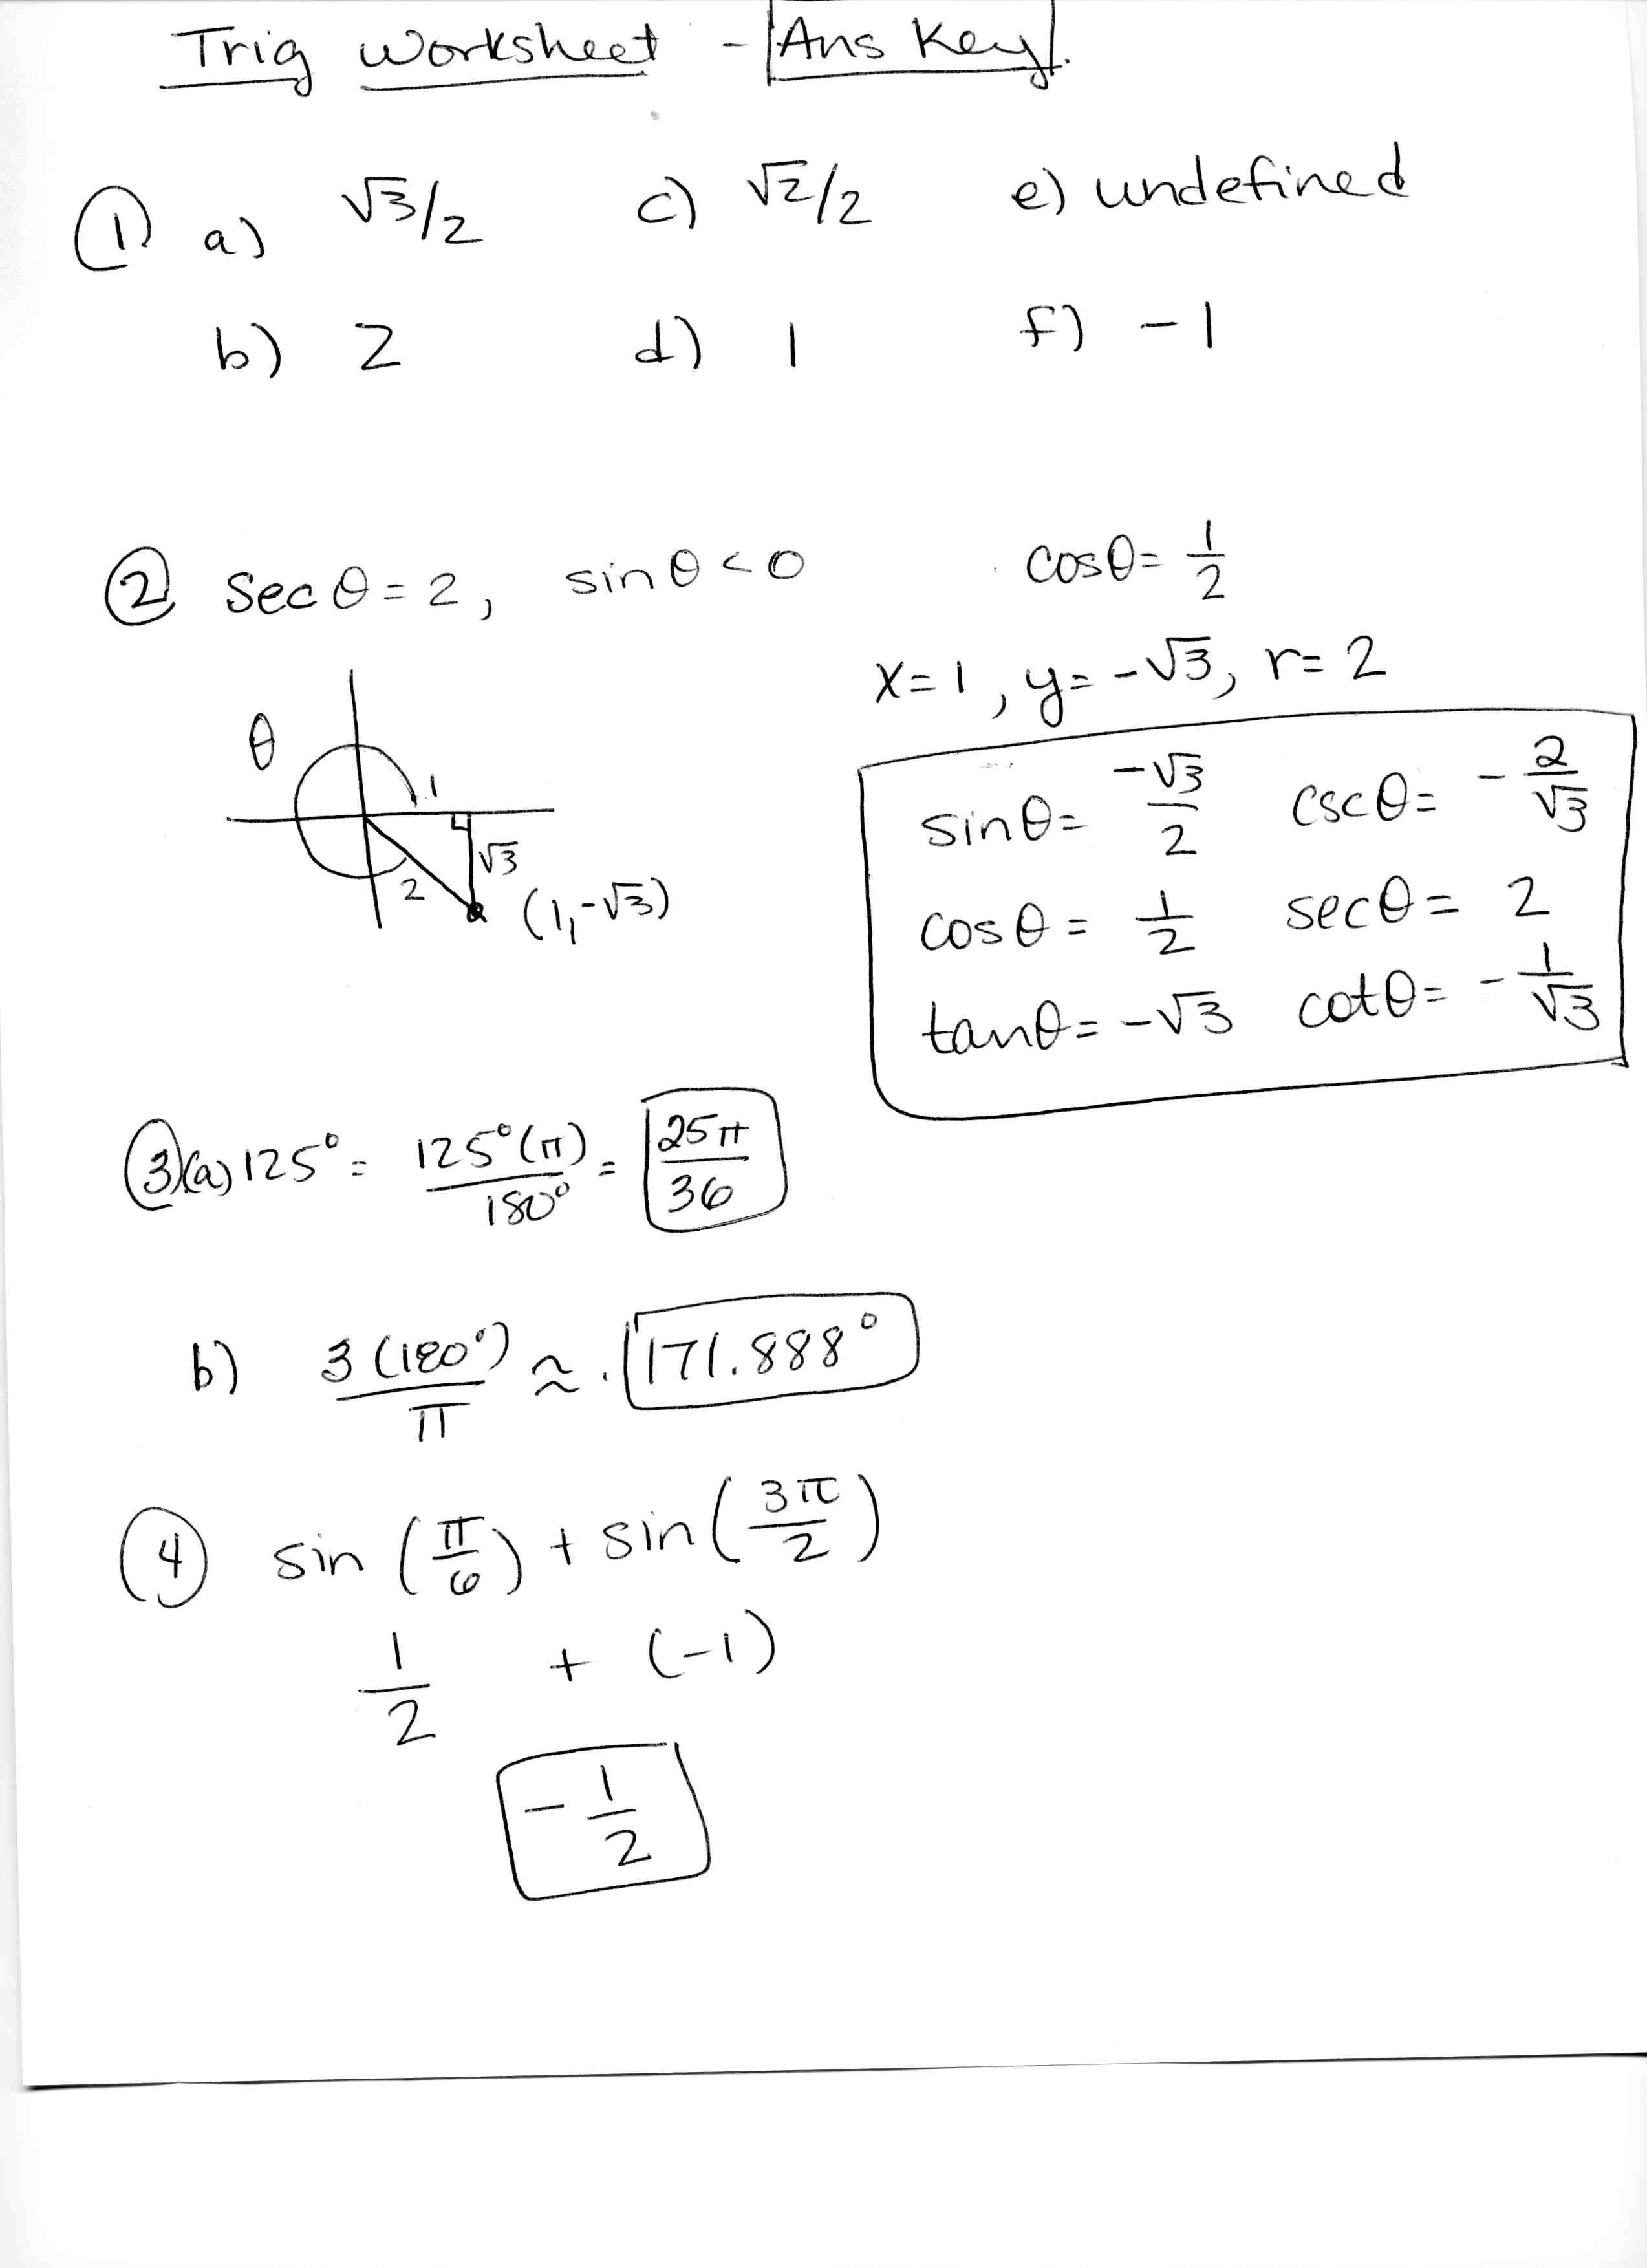 Trig Worksheet - Ans Key.
① a) √3/2 c) √2/2 e) undefined
b) 2 d) 1 f) -1
② sec θ = 2, sin θ < 0 cosθ = 1/2
x = 1, y = -√3, r = 2
θ
1
√3
2
(1, -√3)
sinθ = -√3/2 cscθ = -2/√3
cosθ = 1/2 secθ = 2
tanθ = -√3 cotθ = -1/√3
③(a) 125° = 125°(π)/180° = 25π/36
b) 3(180°)/π ≈ 171.888°
④ sin (π/6) + sin (3π/2)
1/2 + (-1)
-1/2